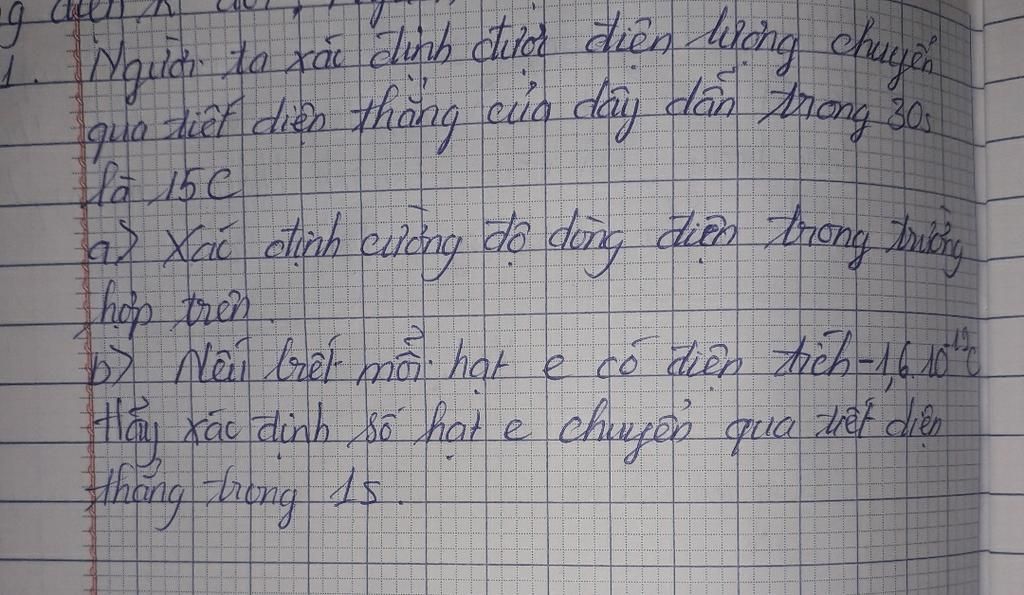 1. Người ta xác định được điện lượng chuyển
qua tiết diện thẳng của dây dẫn trong 30s
là 15C
a) Xác định cường độ dòng điện trong trường
hợp trên.
b) Nếu biết mỗi hạt e có điện tích -1,6.10⁻¹⁹C
Hãy xác định số hạt e chuyển qua tiết diện
thẳng trong 1s.